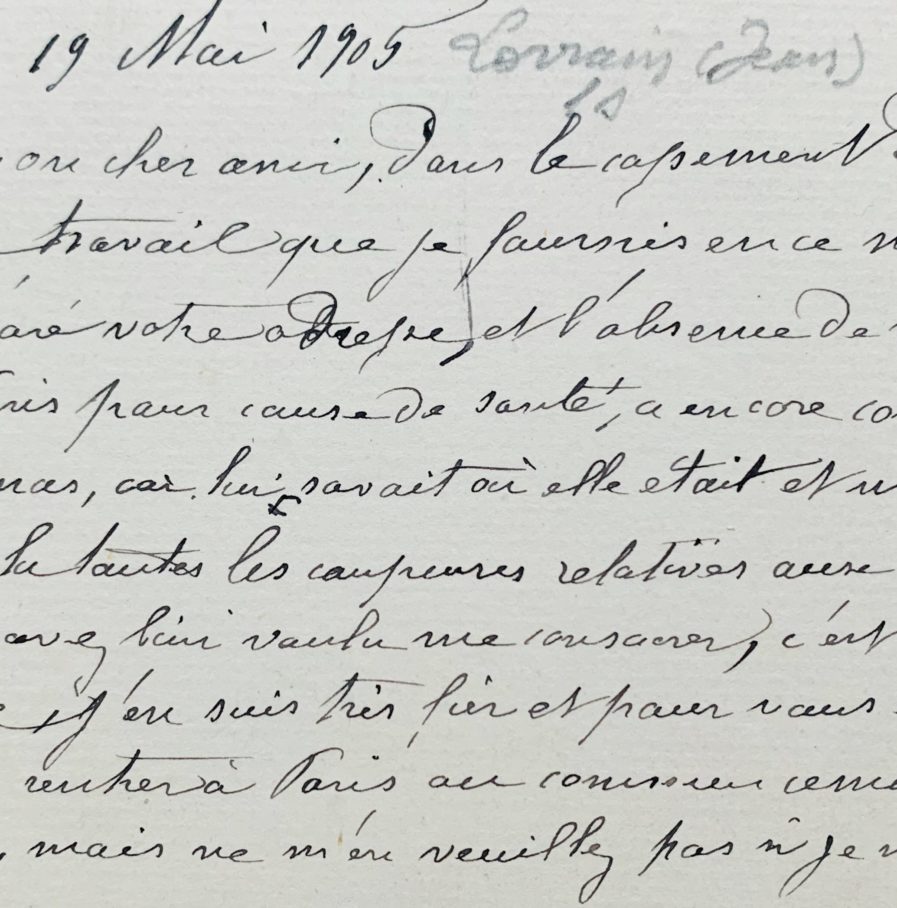 19 Mai 1905 Lorrain (Jean)
LS
on cher ami, Dans le
travail que je fournis en ce
aré votre adresse, et l'absence De
ris pour cause De santé, a encore co
mas, car lui savait où elle était et
lu toutes les coupures relatives aux
avez bien voulu me consacrer, c'est
j'en suis très fier et pour vous
rentrer à Paris au commenceme
, mais ne m'en veuillez pas si je